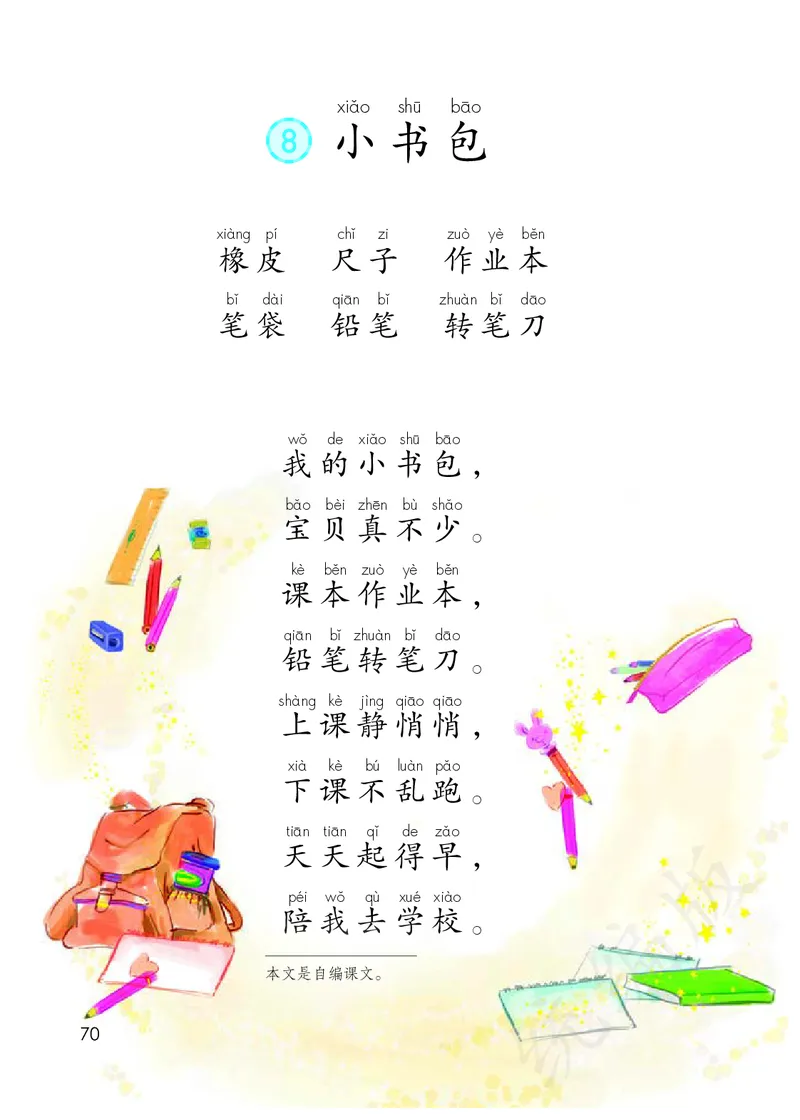 xiǎo shū bāo
8 小书包
xiàng pí chǐ zi zuò yè běn
橡皮 尺子 作业本
bǐ dài qiān bǐ zhuàn bǐ dāo
笔袋 铅笔 转笔刀
wǒ de xiǎo shū bāo
我的小书包，
bǎo bèi zhēn bù shǎo
宝贝真不少。
kè běn zuò yè běn
课本作业本，
qiān bǐ zhuàn bǐ dāo
铅笔转笔刀。
shàng kè jìng qiāo qiāo
上课静悄悄，
xià kè bú luàn pǎo
下课不乱跑。
tiān tiān qǐ de zǎo
天天起得早，
péi wǒ qù xué xiào
陪我去学校。
本文是自编课文。
70